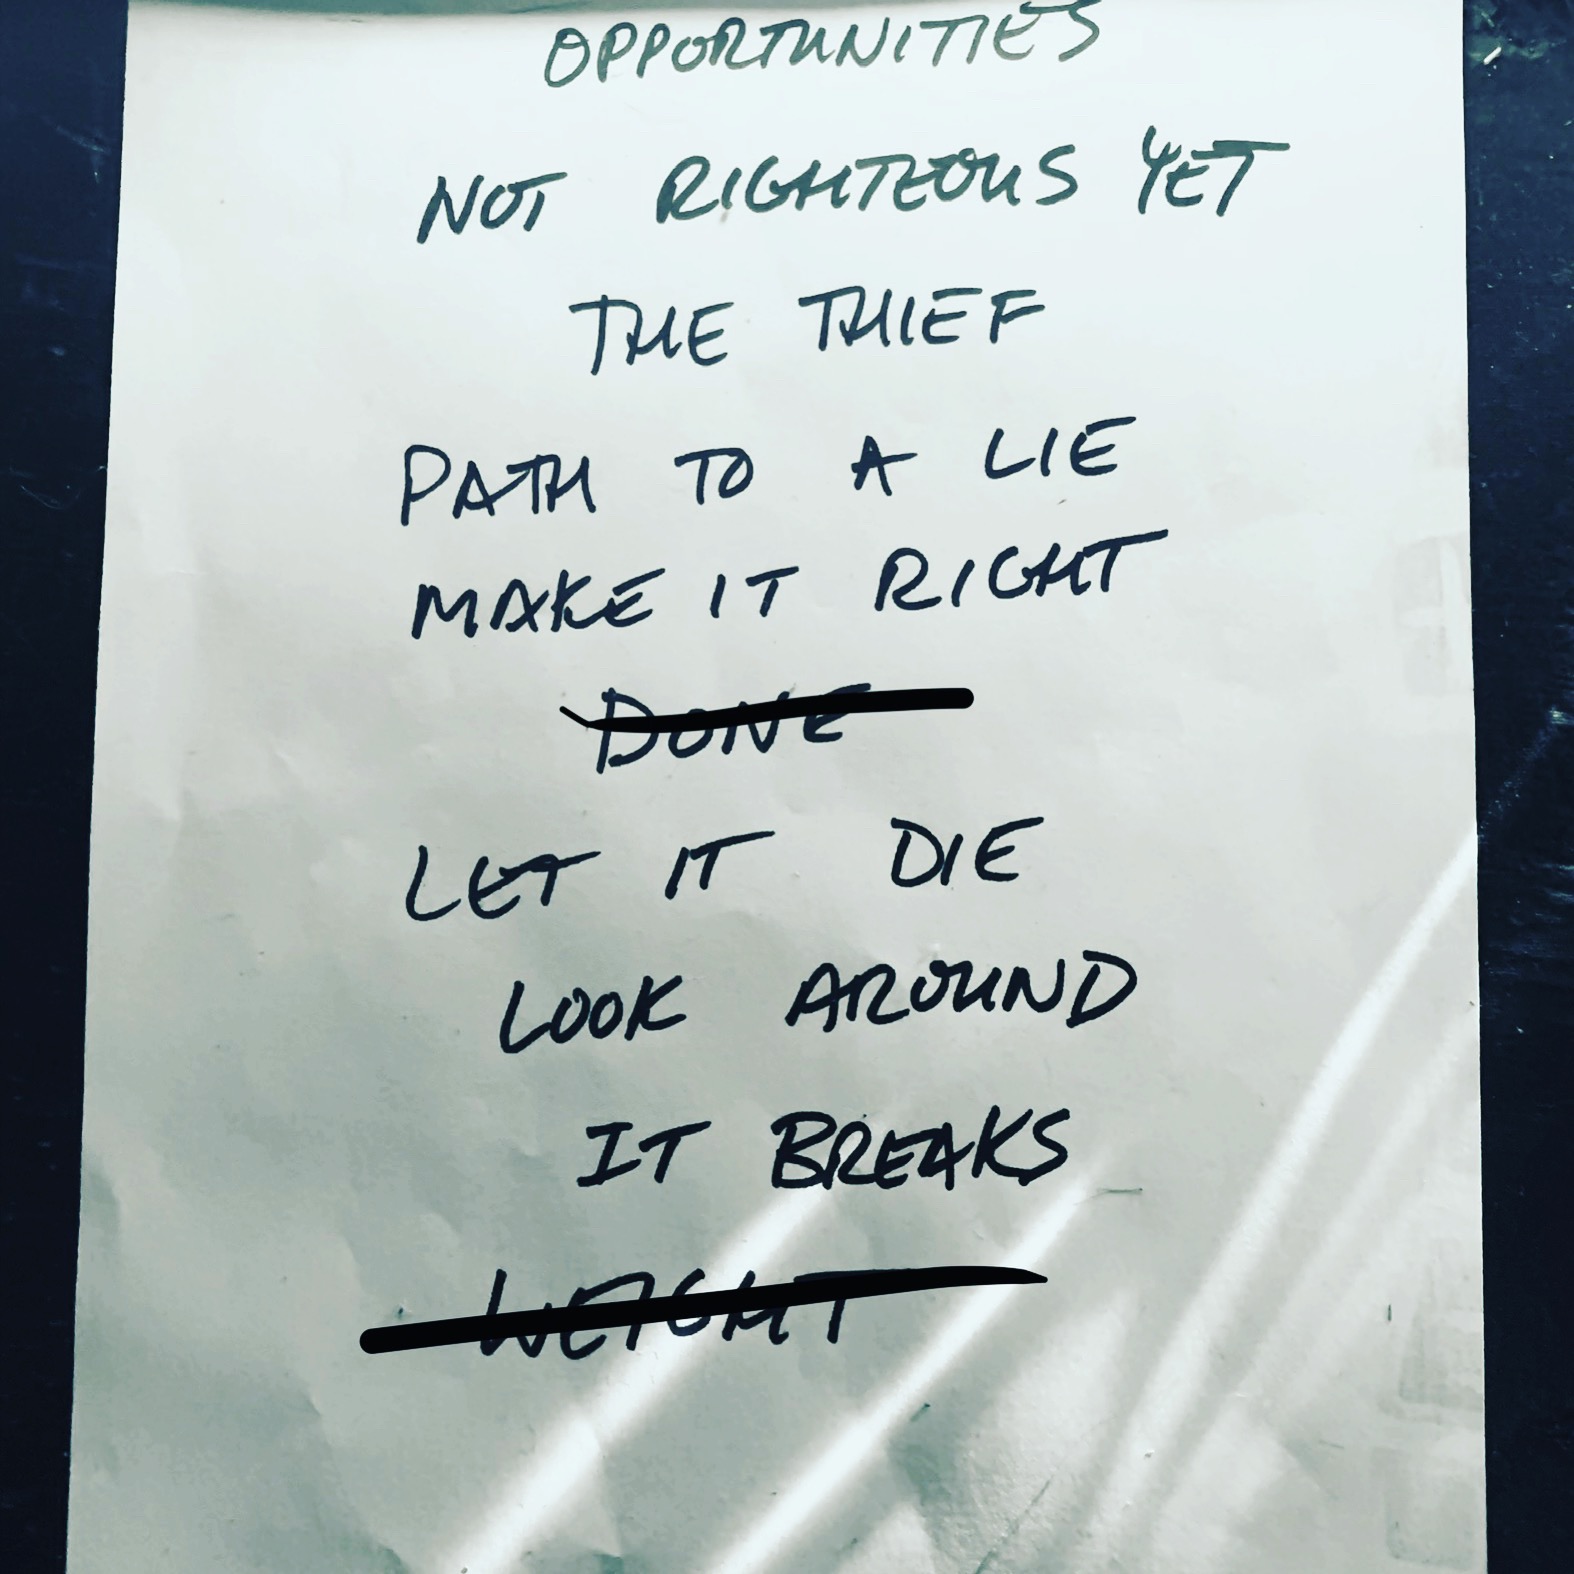 OPPORTUNITIES
NOT RIGHTEOUS YET
THE THIEF
PATH TO A LIE
MAKE IT RIGHT
DONE
LET IT DIE
LOOK AROUND
IT BREAKS
WEIGHT